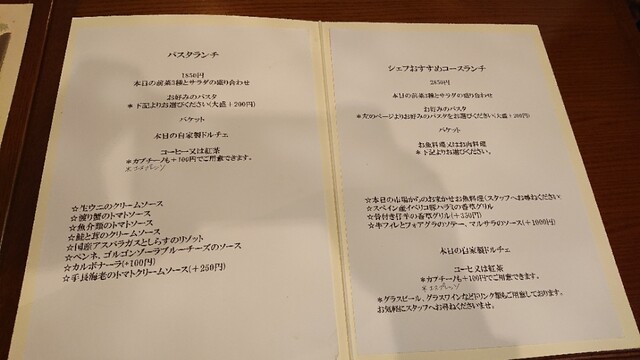 パスタランチ
1850円
本日の前菜3種とサラダの盛り合わせ
お好みのパスタ
＊下記よりお選びください(大盛+200円)
バケット
本日の自家製ドルチェ
コーヒー又は紅茶
＊カプチーノも+100円でご用意できます。
☆生ウニのクリームソース
☆渡り蟹のトマトソース
☆魚介類のトマトソース
☆鮭と茸のクリームソース
☆国産アスパラガスとしらすのリゾット
☆ペンネ、ゴルゴンゾーラブルーチーズのソース
☆カルボナーラ(+100円)
☆手長海老のトマトクリームソース(+250円)
シェフおすすめコースランチ
2850円
本日の前菜3種とサラダの盛り合わせ
お好みのパスタ
＊左のページよりお好みのパスタをお選びください(大盛+200円)
バケット
お魚料理又はお肉料理
＊下記よりお選びください。
☆本日の市場からのおまかせお魚料理(スタッフへお尋ねください)
☆スペイン産イベリコ豚ハラミの香草グリル
☆骨付き仔羊の香草グリル(+350円)
☆牛フィレとフォアグラのソテー、マルサラのソース(+1000円)
本日の自家製ドルチェ
コーヒ又は紅茶
＊カプチーノも+100円でご用意できます。
＊グラスビール、グラスワインなどドリンク類もご用意しております。
お気軽にスタッフへお尋ねくださいませ。